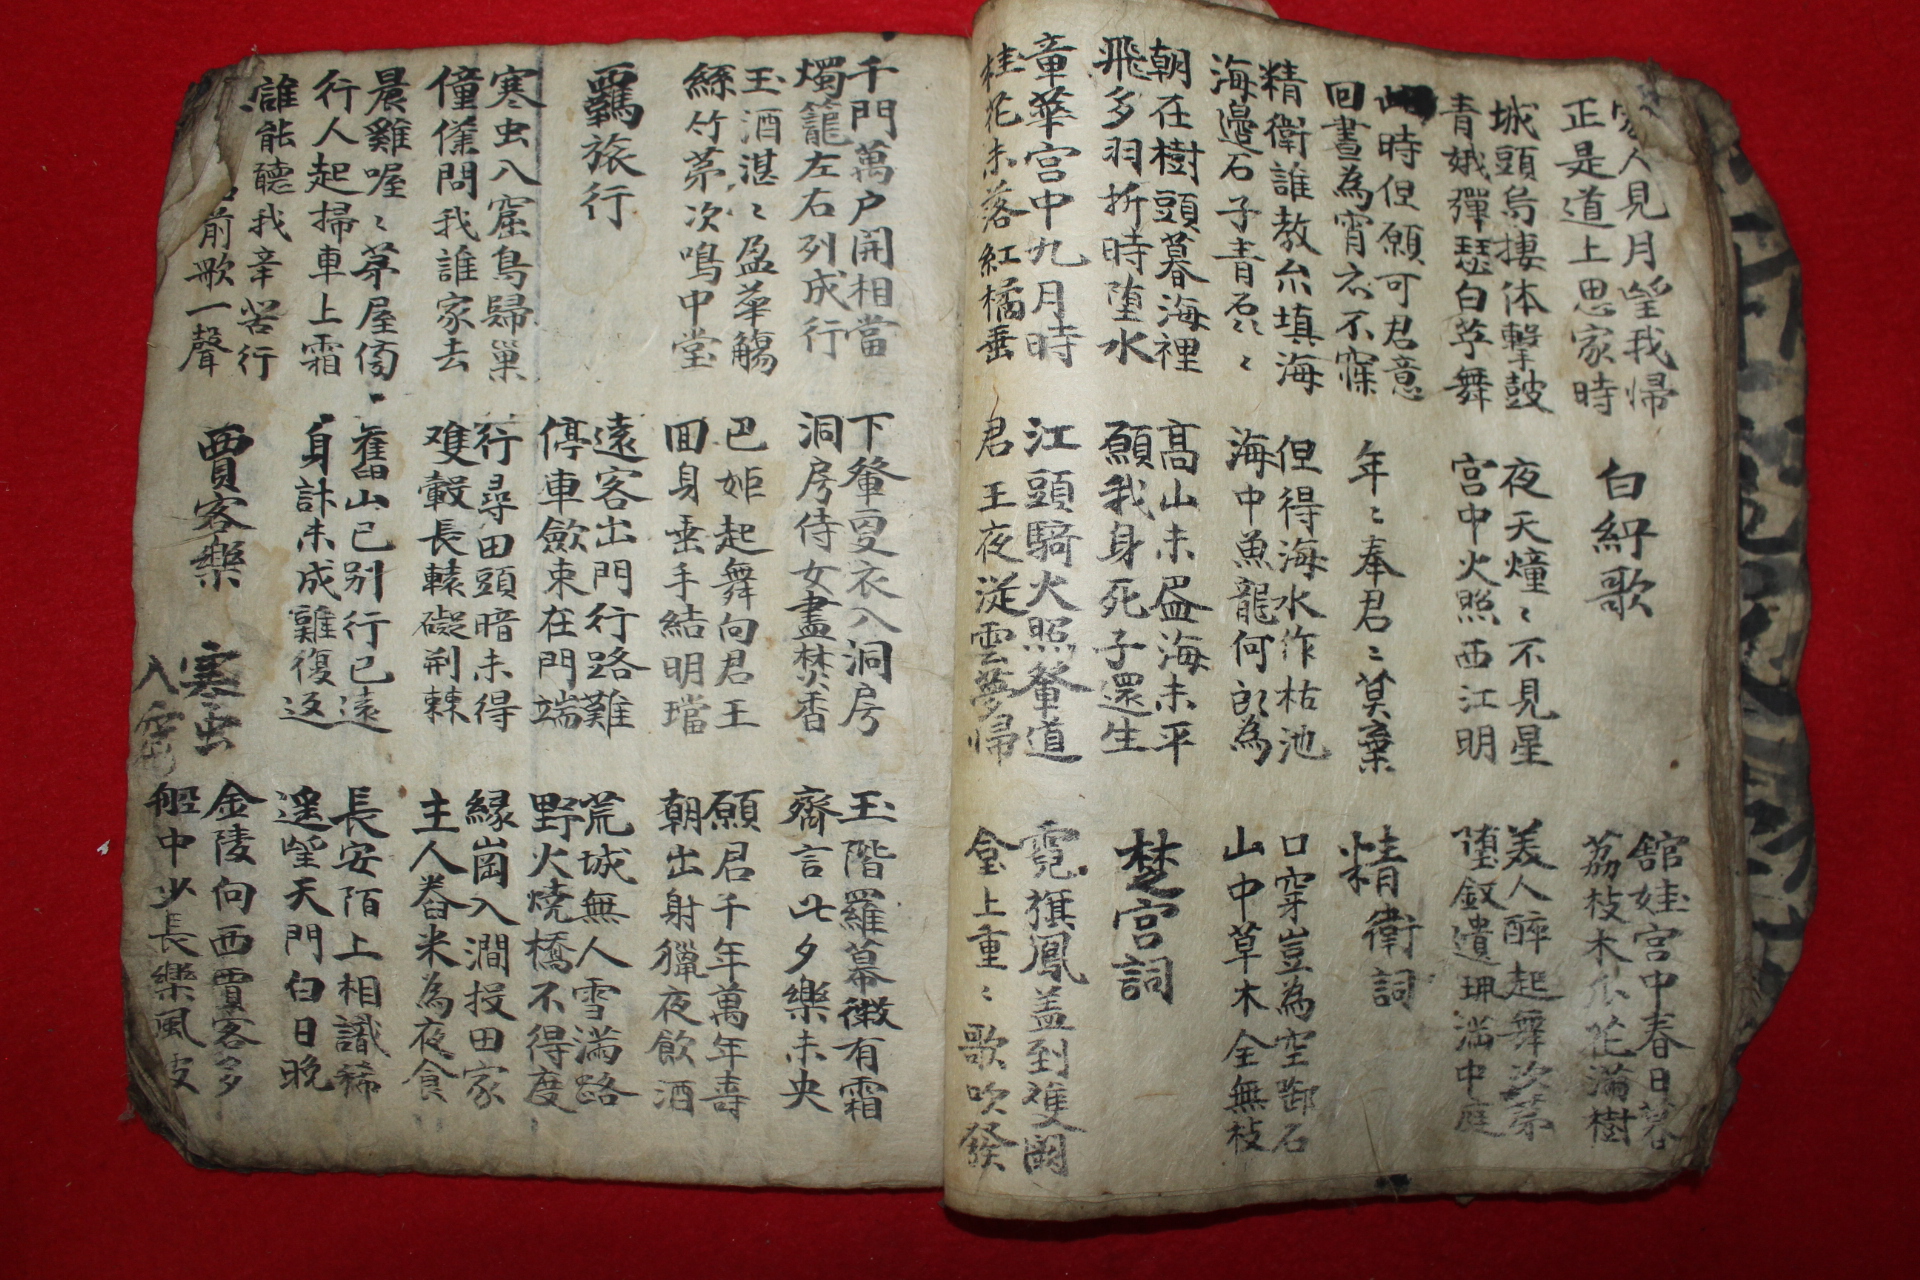 人見月望我帰
正是道上思家時
白紵歌
館娃宮中春日暮
荔枝木瓜花滿樹
城頭烏捿休擊鼓
青娥彈瑟白苧舞
夜天燑〻不見星
宮中火照西江明
美人醉起舞次第
堕釵遺珮滿中庭
此時但願可君意
回晝為宵亦不寐
年〻奉君〻莫棄
精衛詞
精衛誰教尒填海
海邊石子青磊〻
但得海水作枯池
海中魚龍何所為
口穿豈為空啣石
山中草木全無枝
朝在樹頭暮海裡
飛多羽折時堕水
髙山未盡海未平
願我身死子還生
楚宮詞
章華宮中九月時
桂花未落紅橘垂
江頭騎火照輦道
君王夜從雲夢帰
霓旗鳳盖到雙闕
臺上重〻歌吹發
千門萬户開相當
燭籠左右列成行
下輦更衣入洞房
洞房侍女盡焚香
玉階羅幕微有霜
齊言此夕樂未央
玉酒湛〻盈華觴
絲竹苐次鳴中堂
巴姫起舞向君王
回身垂手結明璫
願君千年萬年壽
朝出射獵夜飲酒
羈旅行
遠客出門行路難
停車歛束在門端
荒城無人雪滿路
野火燒橋不得度
寒虫入窟鳥歸巢
僮僕問我誰家去
行尋田頭暗未得
雙轂長轅礙荊棘
縁崗入澗投田家
主人舂米為夜食
晨雞喔〻茅屋傍
行人起掃車上霜
舊山已别行已遠
身計未成難復返
長安陌上相識稀
遥望天門白日晚
誰能聽我辛苦行
君前歌一聲
賈客樂
寒虫
入窟
金陵向西賈客多
船中少長樂風波